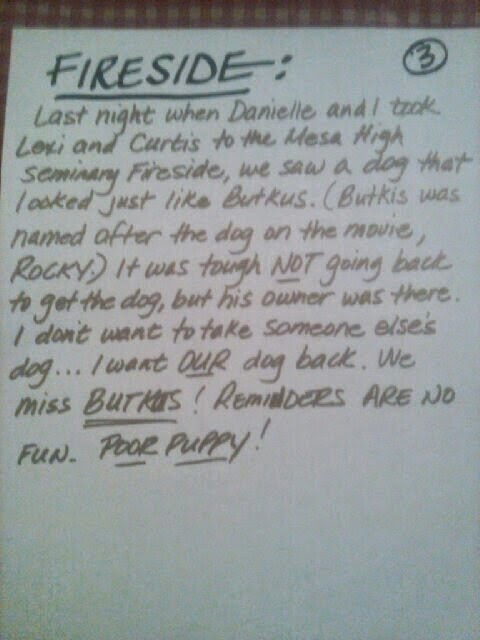 FIRESIDE:
3
Last night when Danielle and I took
Lexi and Curtis to the Mesa High
Seminary Fireside, we saw a dog that
looked just like Butkus. (Butkis was
named after the dog on the movie,
ROCKY.) It was tough NOT going back
to get the dog, but his owner was there.
I don't want to take someone else's
dog... I want OUR dog back. We
miss BUTKIS! REMINDERS ARE NO
FUN. POOR PUPPY!